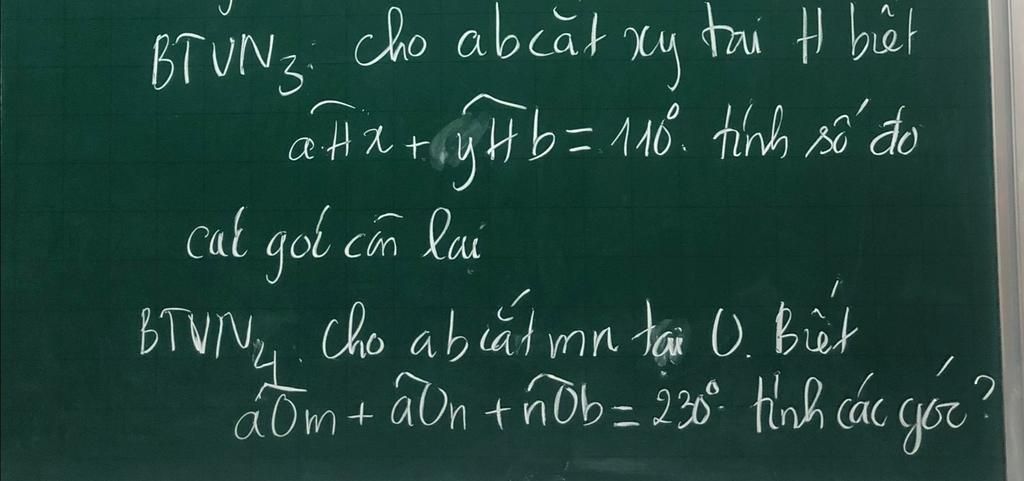 BTVN3: Cho ab cắt xy tại H biết
aHx + yHb = 110°. tính số đo
các góc còn lại
BTVN4. Cho ab cắt mn tại O. Biết
aOm + aOn + nOb = 230° tính các góc?